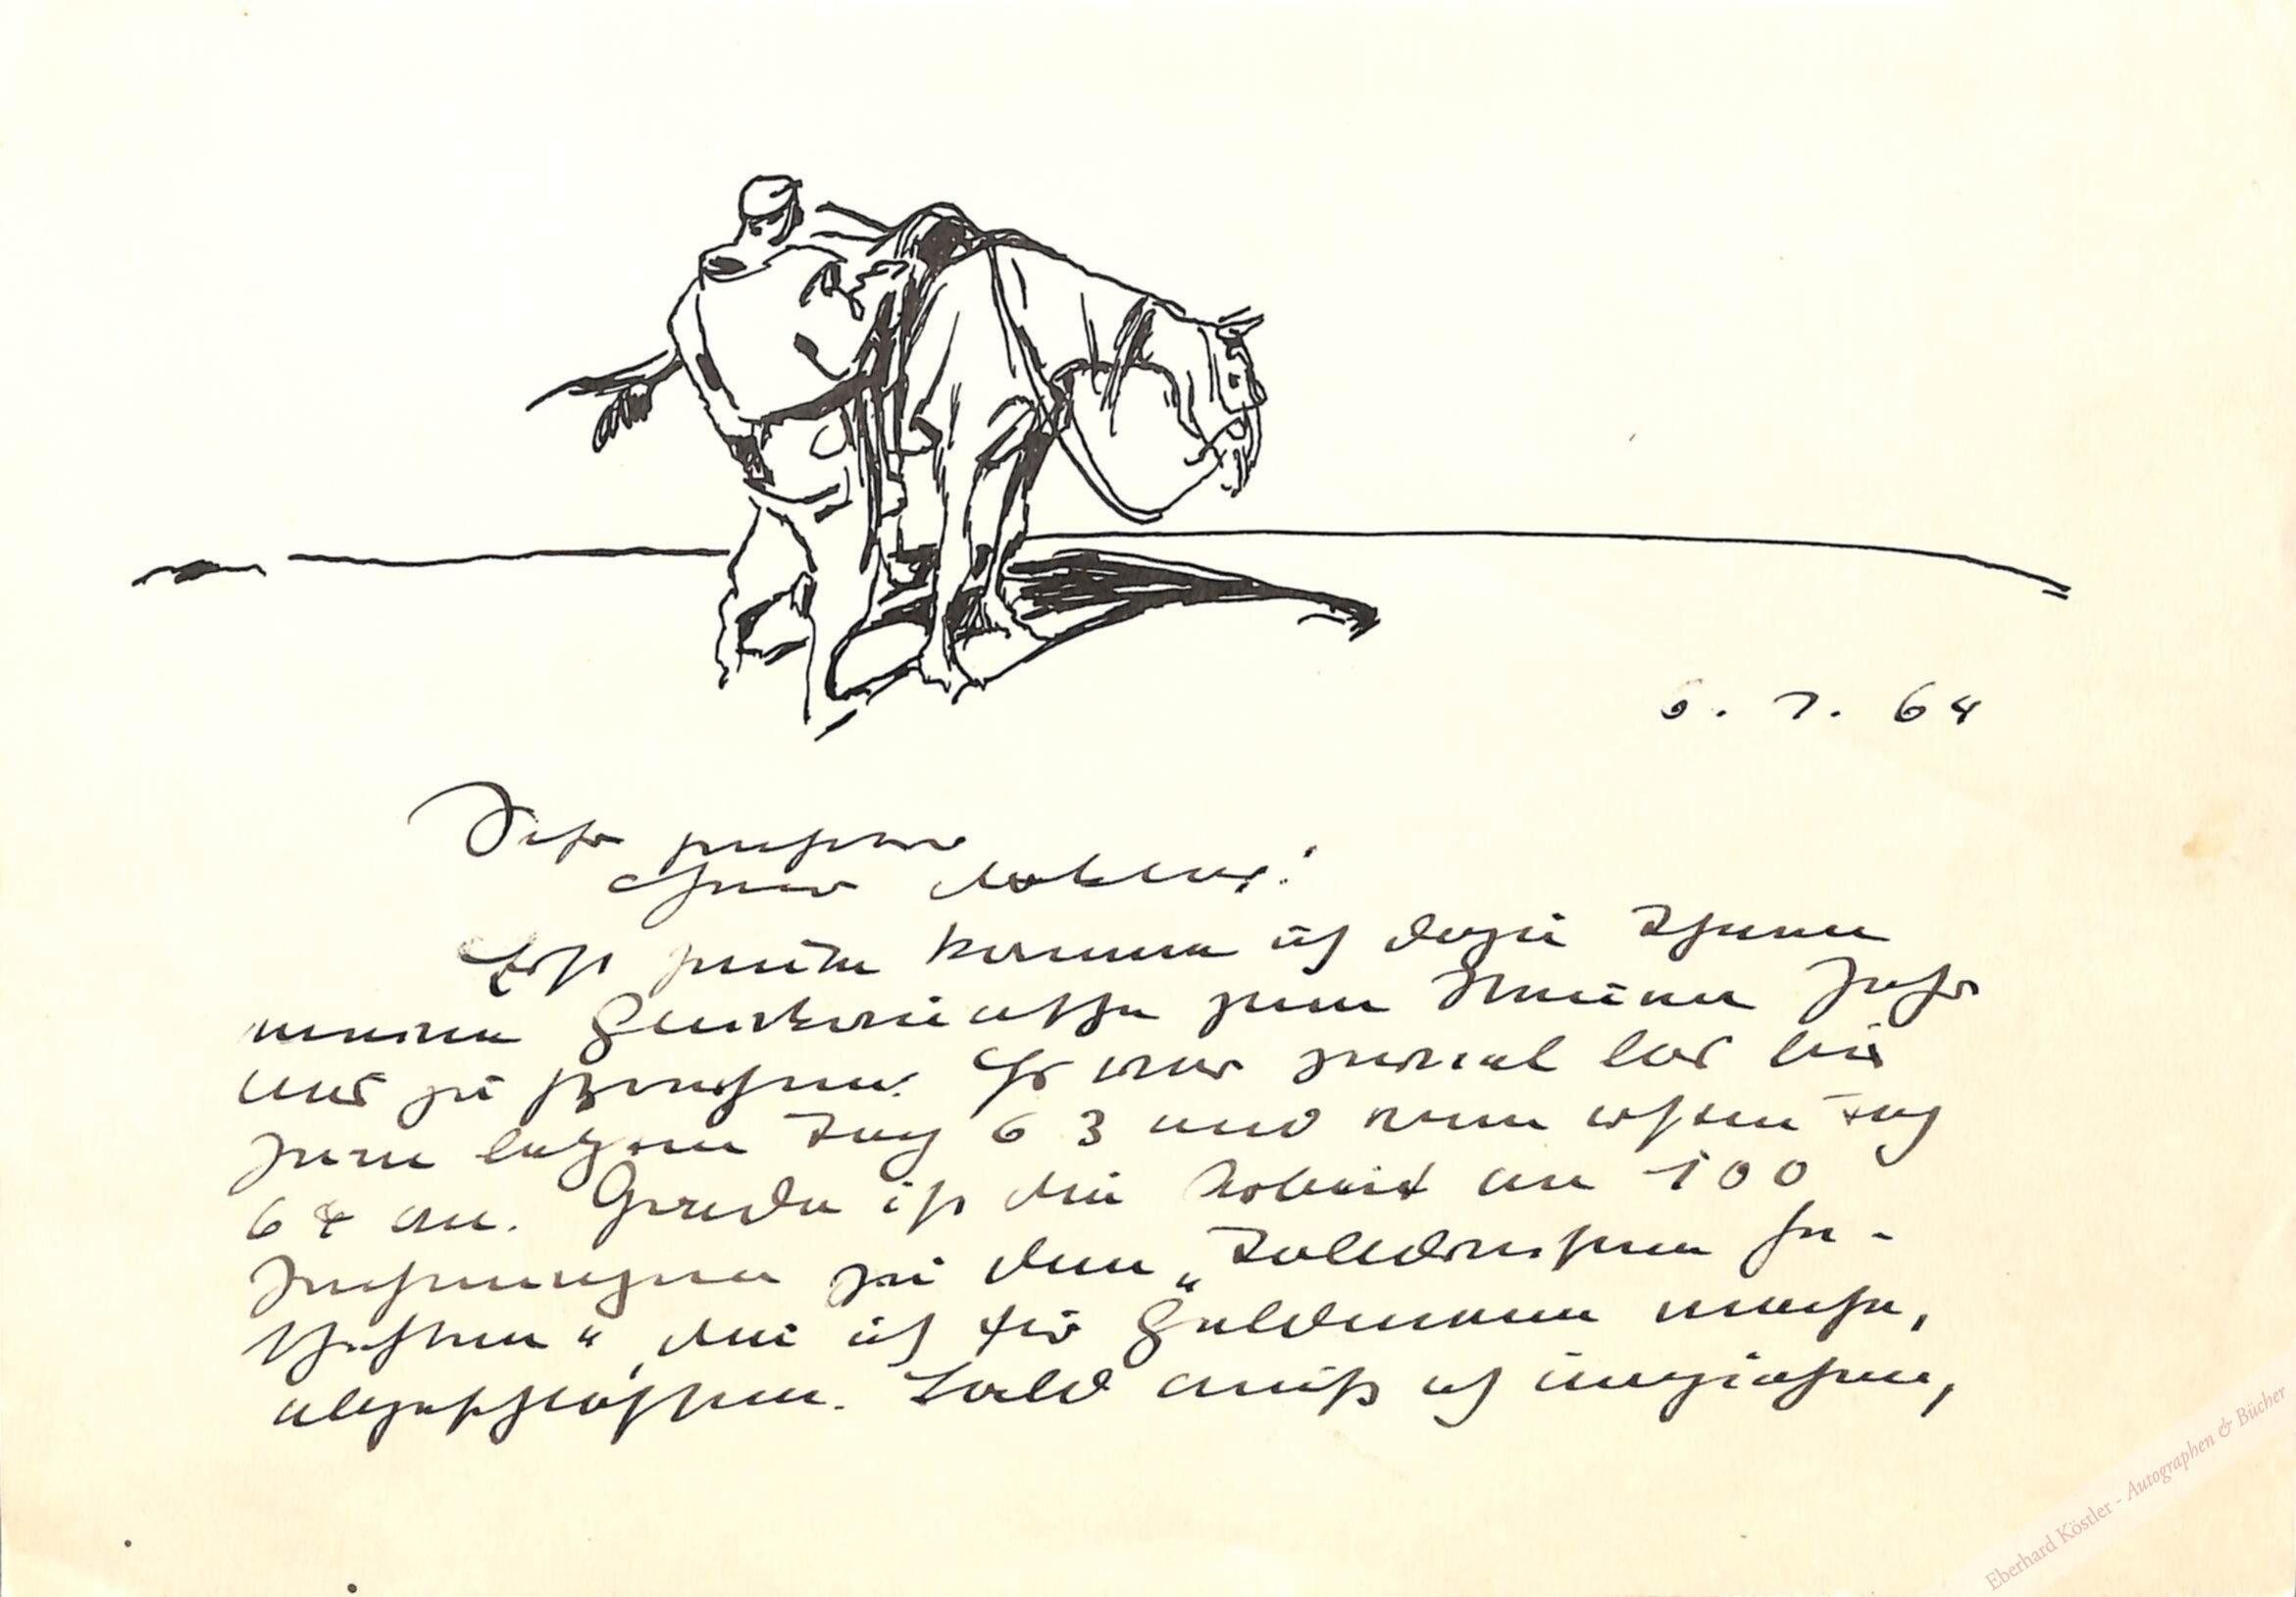 6. 1. 64
Sehr geehrter
Herr Doktor!
Erst heute komme ich dazu Ihnen
meine Glückwünsche zum Neuen Jahr
zu Es war soviel los bis
zum letzten Tag 63 und vom ersten Tag
64 an. Gerade ist die Arbeit an 100
Zeichnungen zu den „Toldreschen Ge-
schichten“, die ich für Goldmann mache,
abgeschlossen. Bald muß ich umziehen,
Eberhard Köstler - Autographen & Bücher